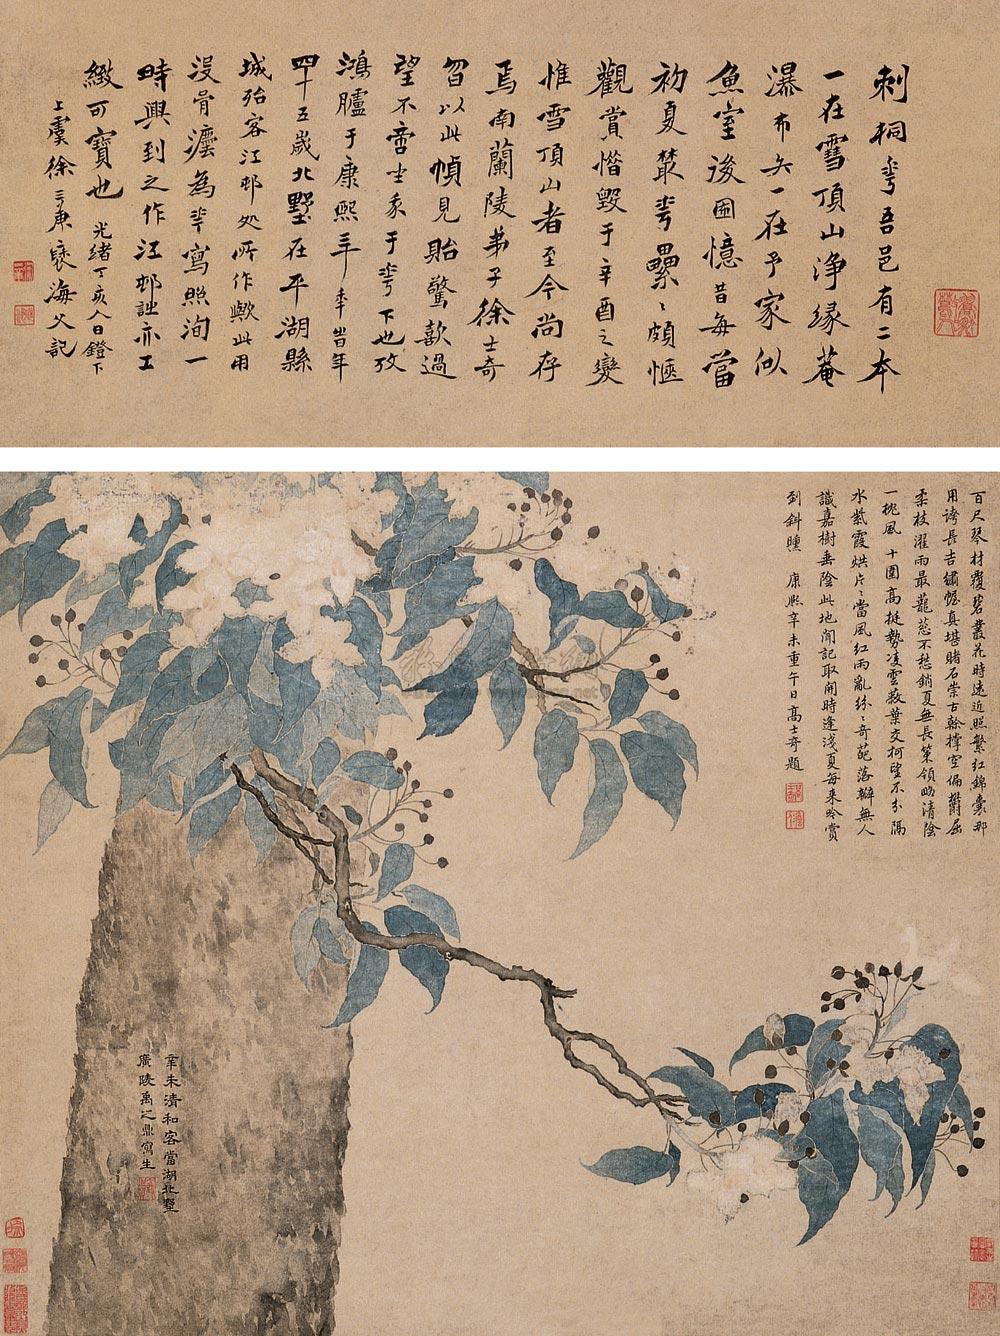 刺桐華吾邑有二本
一在雪頂山淨緣菴
瀑布矣一在予家似
魚室後囿憶昔每當
初夏叢華纍〻頗愜
觀賞惜毀于辛酉之變
惟雪頂山者至今尚存
焉南蘭陵弟子徐士奇
曶以此幀見貽驚歎過
望不啻坐我于華下也攷
鴻臚于康熙三年
四十五歲北墅在平湖縣
城殆客江邨處所作歟此用
沒骨灋為華寫照洵一
時興到之作江邨詩亦工
緻可寶也 光緒丁亥人日鐙下
上虞徐三庚褎海父記
百尺琴材覆碧叢花時遠近照繁紅錦囊那
用誇長吉繡幄真堪賭石崇古榦撐空偏鬱屈
柔枝濯雨最蘢蔥不愁銷夏無長策領畧清陰
一枕風 十圍高挺勢凌雲薇葉交柯望不分隔
水紫霞烘片〻當風紅雨亂紛〻奇葩落瓣無人
識嘉樹垂陰此地聞記取開時逢淺夏每來吟賞
到斜曛 康熙辛未重午日高士奇題
辛未清和客當湖北墅
廣陵禹之鼎寫生